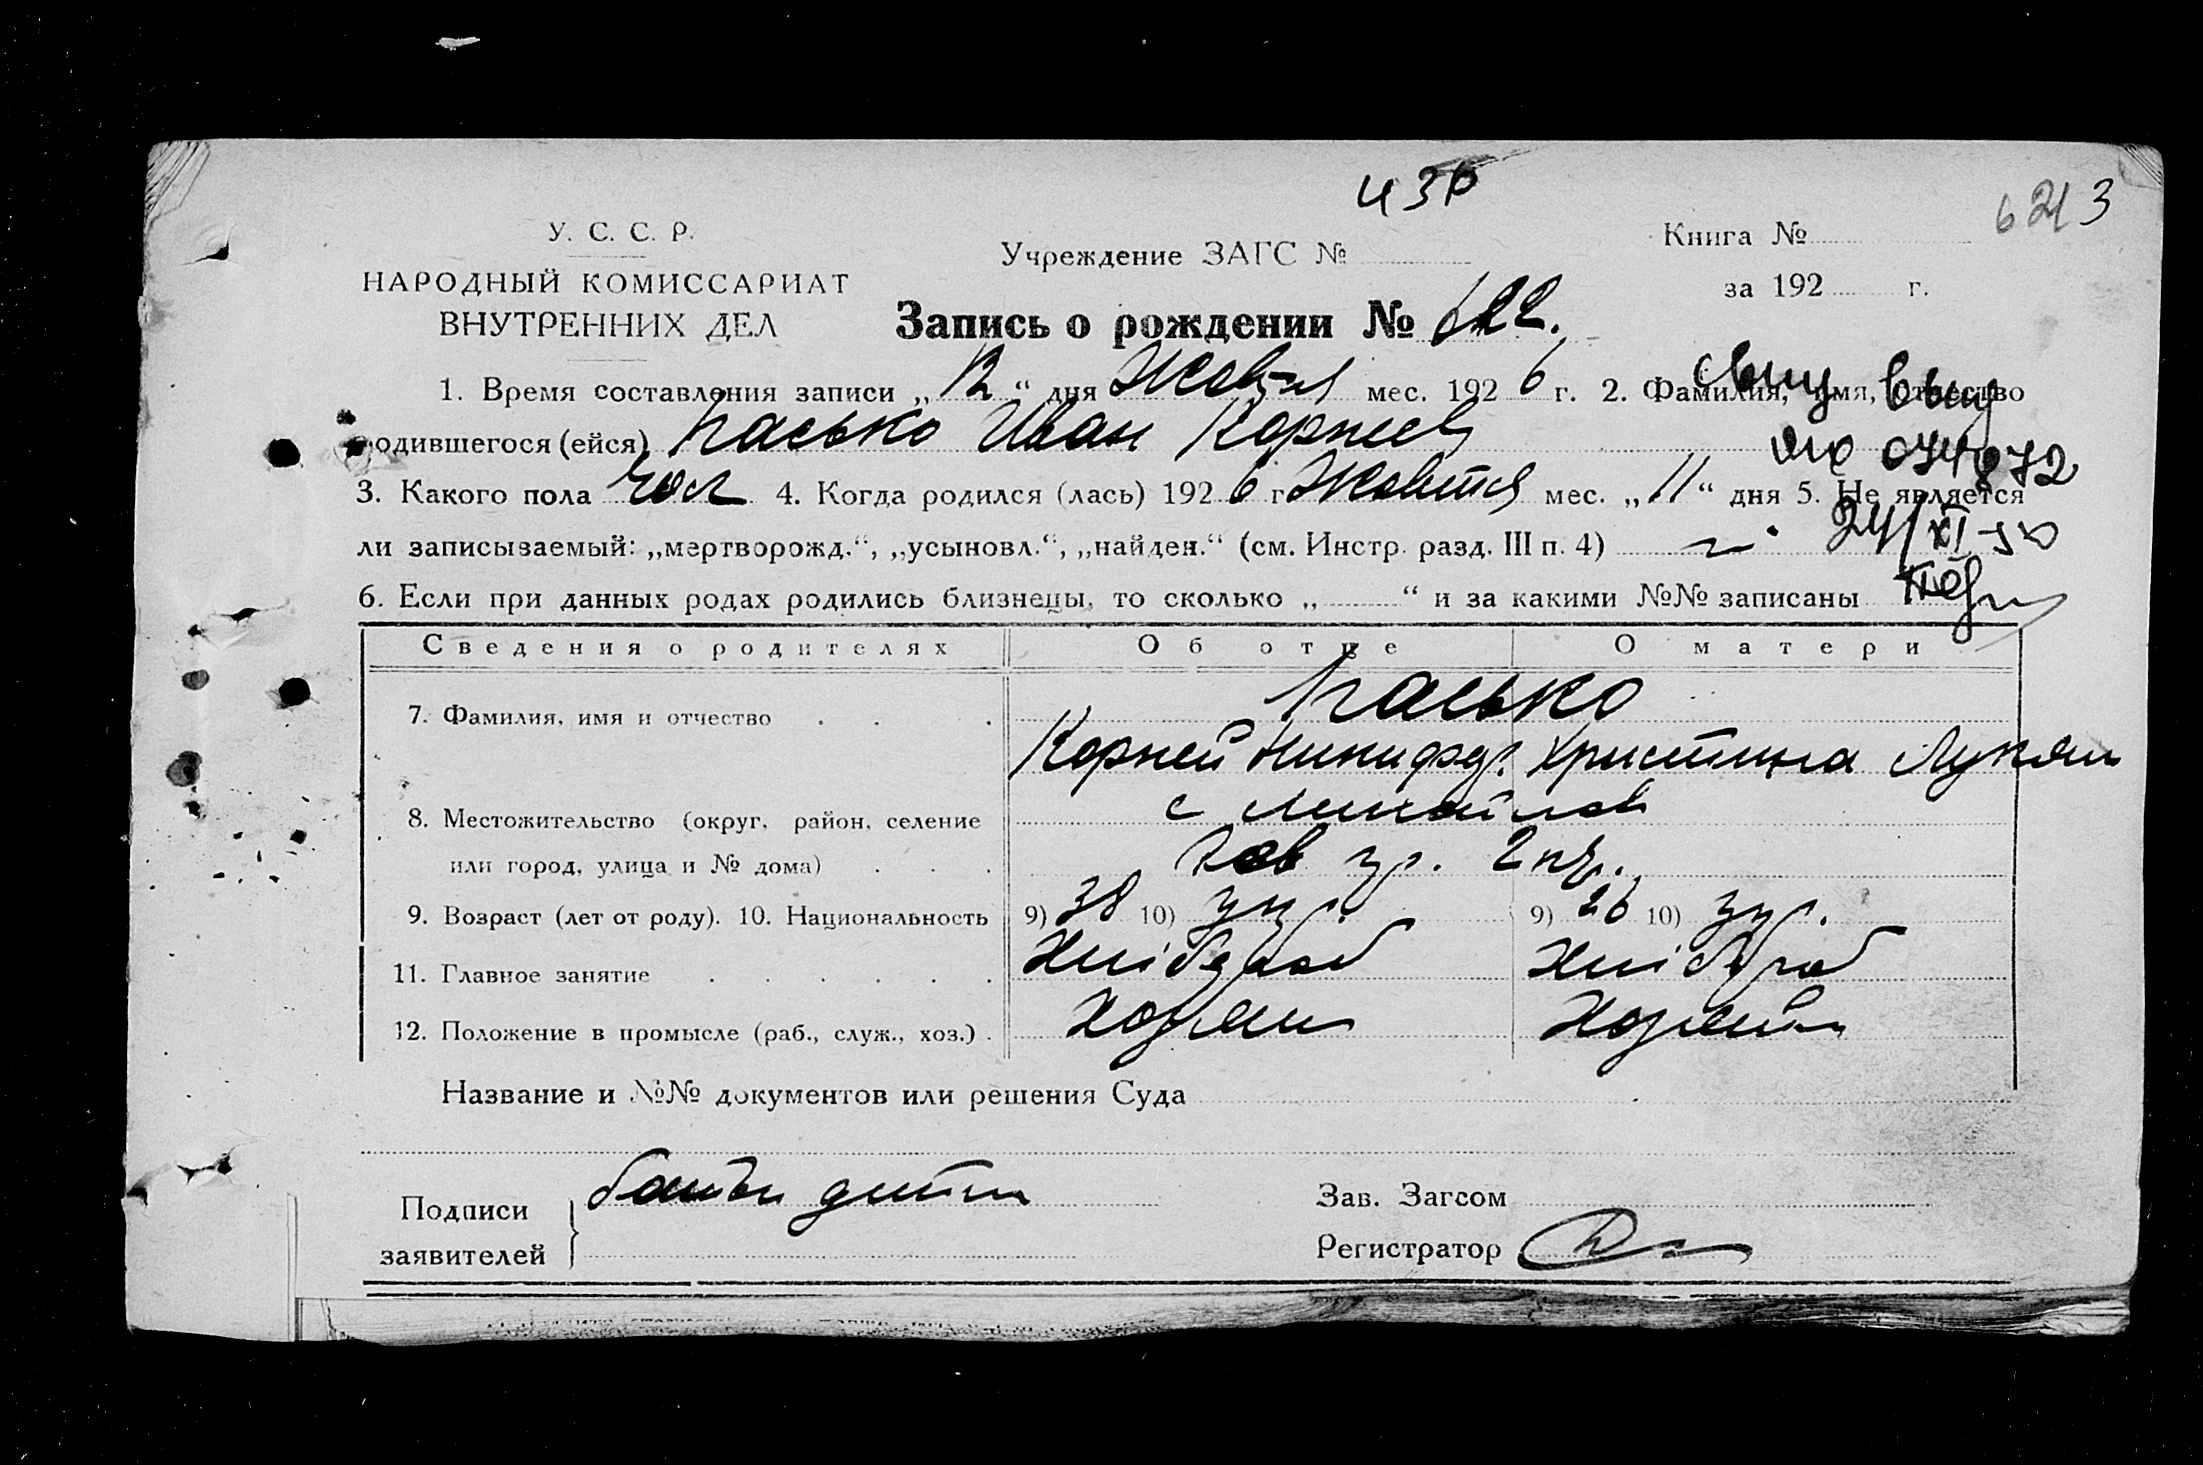 436
6213
У. С. С. Р.
НАРОДНЫЙ КОМИССАРИАТ
ВНУТРЕННИХ ДЕЛ
Учреждение ЗАГС №
Книга №
за 192 г.
Запись о рождении № 622.
1. Время составления записи „12“ дня Жовтня мес. 1926 г. 2. Фамилия, имя, отчество
родившегося (ейся) Пасько Иван Корнеев
074872
3. Какого пола чол 4. Когда родился (лась) 1926 г Жовтня мес. „11“ дня 5. Не является
ли записываемый: „мертворожд.“, „усыновл.“, „найден.“ (см. Инстр. разд. III п. 4)
24/XI-50
6. Если при данных родах родились близнецы, то сколько „ “ и за какими №№ записаны
Сведения о родителях Об отце О матери
7. Фамилия, имя и отчество Пасько
Корней Никифор. Христина Лукян
8. Местожительство (округ, район, селение с
или город, улица и № дома)
9. Возраст (лет от роду). 10. Национальность 9) 38 10) укр. 9) 26 10) укр.
11. Главное занятие Хлібороб Хлібороб
12. Положение в промысле (раб., служ., хоз.) Хозяин Хозяйка
Название и №№ документов или решения Суда
Подписи
заявителей
батьки дитини
Зав. Загсом
Регистратор